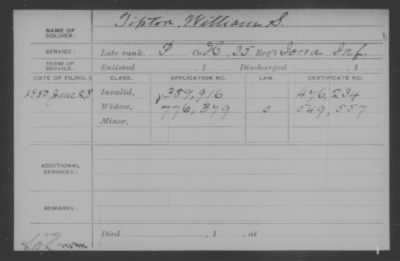 NAME OF SOLDIER: Tipton, William S.
SERVICE: Late rank, P Co. H, 35 Reg't Iowa Inf.
TERM OF SERVICE: Enlisted , 1 Discharged , 1
DATE OF FILING. CLASS. APPLICATION NO. LAW. CERTIFICATE NO.
1880 June 28 Invalid, 389,916 476,234
Widow, 776,379 549,557
Minor,
ADDITIONAL SERVICES:
REMARKS:
Died , 1 , at